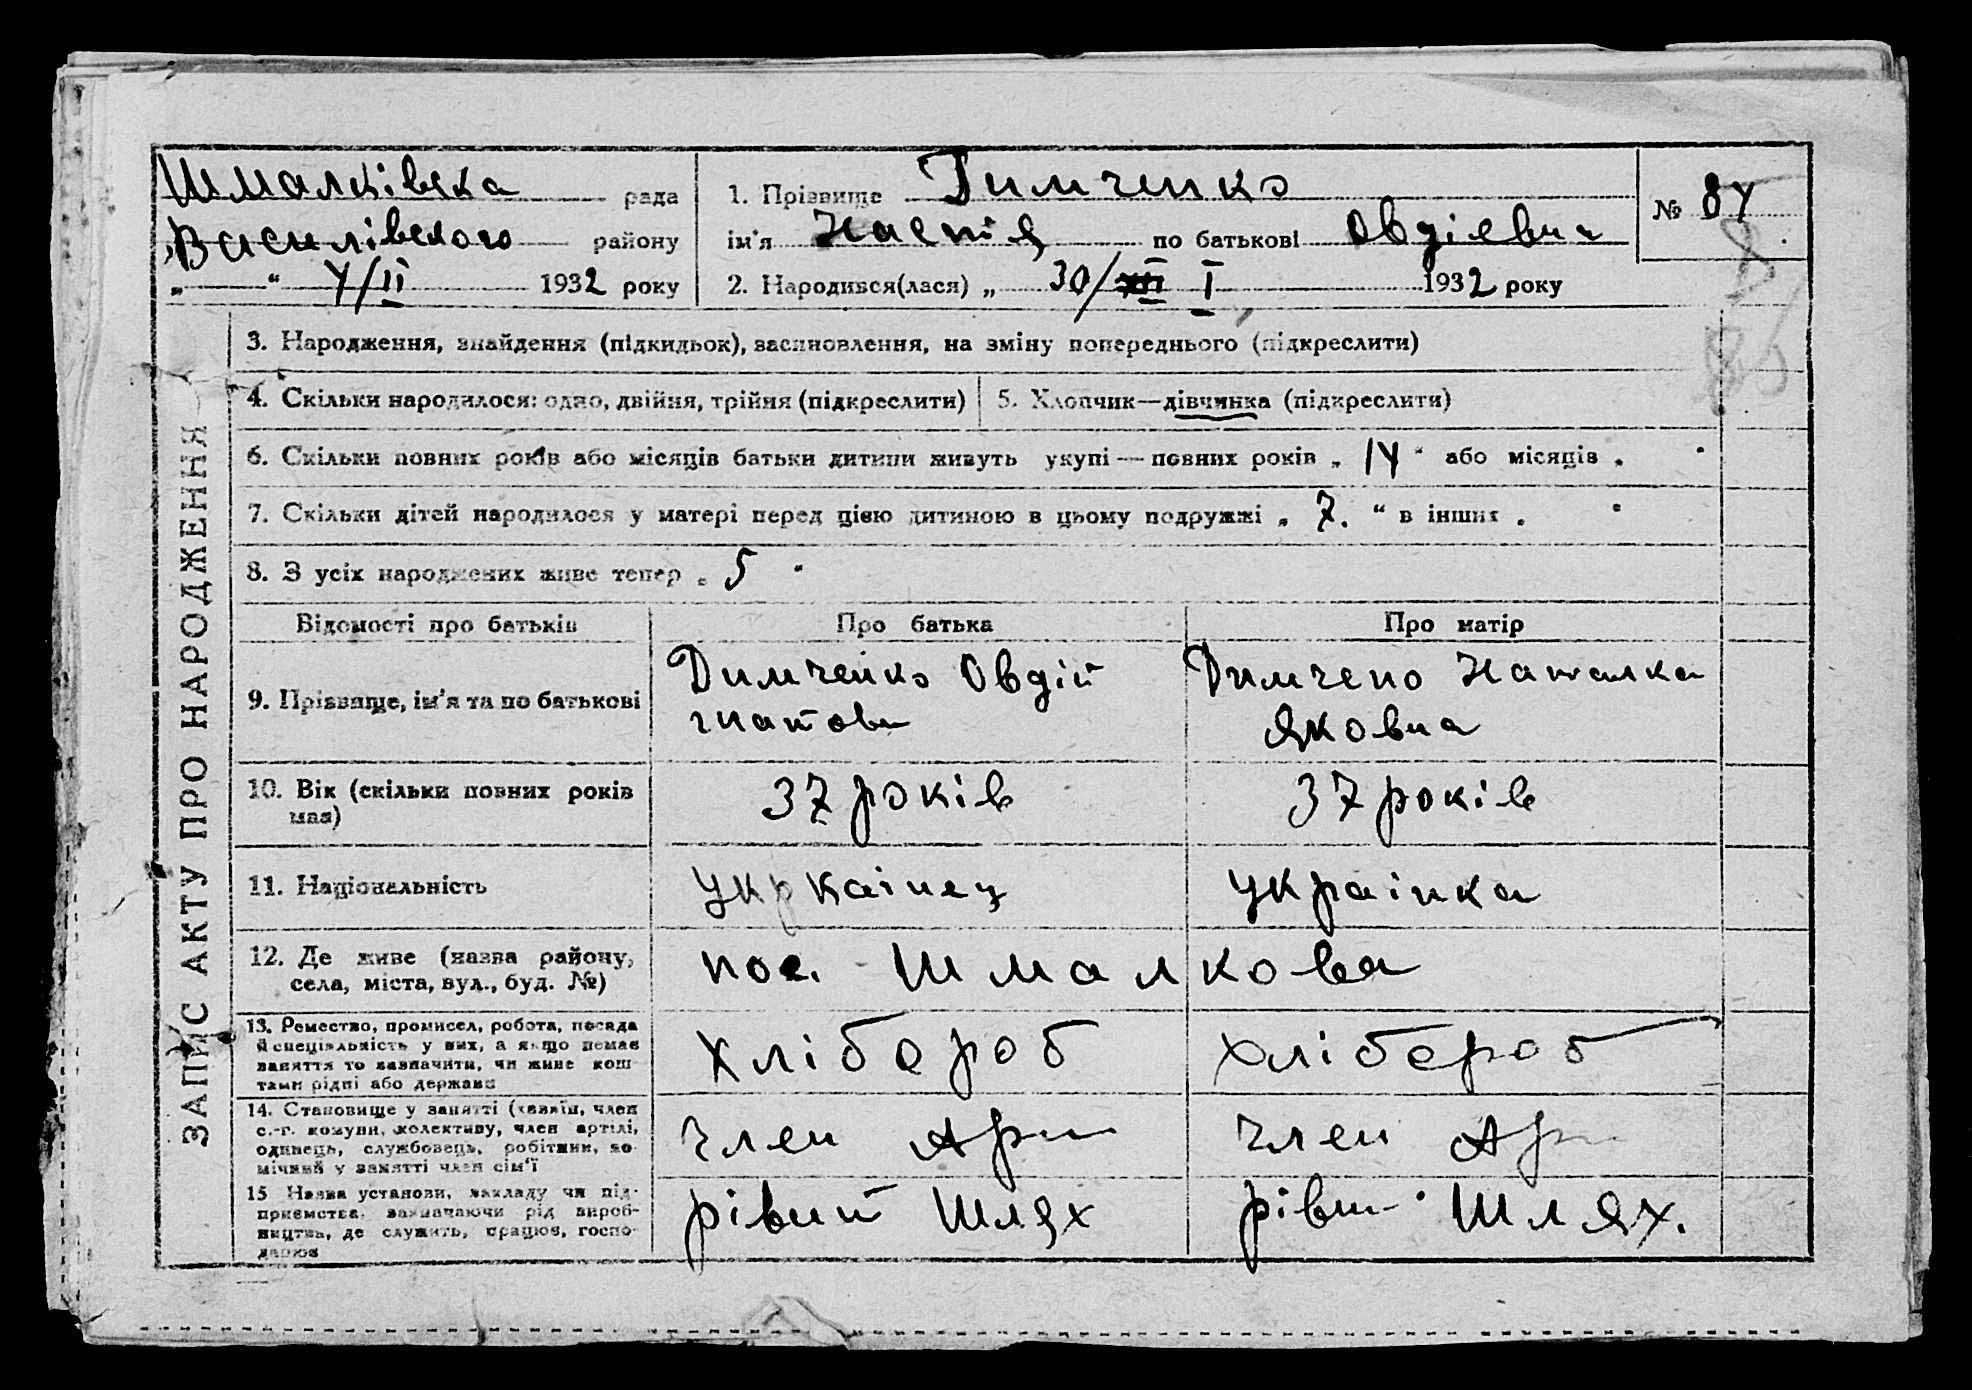 Шмалківска рада
Василівского району
„ “ 4/II 1932 року
1. Прізвище Димченко
ім'я Настія по батькові Овдіевна
2. Народився(лася) „ 30/ I 1932 року
№ 84
ЗАПИС АКТУ ПРО НАРОДЖЕННЯ
3. Народження, знайдення (підкидьок), всановлення, на зміну попереднього (підкреслити)
4. Скільки народилося: одно, двійня, трійня (підкреслити)
5. Хлопчик—дівчинка (підкреслити)
6. Скільки повних років або місяців батьки дитини живуть укупі — повних років „ 14 “ або місяців „
7. Скільки дітей народилося у матері перед цією дитиною в цьому подружжі „ 7. “ в інших „
8. З усіх народжених живе тепер „ 5 “
Відомості про батьків
Про батька
Про матір
9. Прізвище, ім'я та по батькові
Димченко Овдій
гнатови
Димчено Наталка
Яковна
10. Вік (скільки повних років
має)
37 років
37 років
11. Національність
укркаінец
украінка
12. Де живе (назва району,
села, міста, вул., буд. №)
пос. Шмалкова
13. Ремество, промисел, робота, посада
й спеціяльність у них, а якщо немає
заняття то зазначити, чи живе кош-
тами рідні або держави
Хлібороб
хлібороб
14. Становище у занятті (хазяїн, член
с.-г. комуни, колективу, член артілі,
одинець, службовець, робітник, по-
мічний у занятті член сім'ї
член Арт
член Арт
15 Назва установи, закладу чи під-
приємства, зазначаючи рід вироб-
ництва, де служить, працює, госпо-
дарює
рівний Шлях
рівн Шлях.